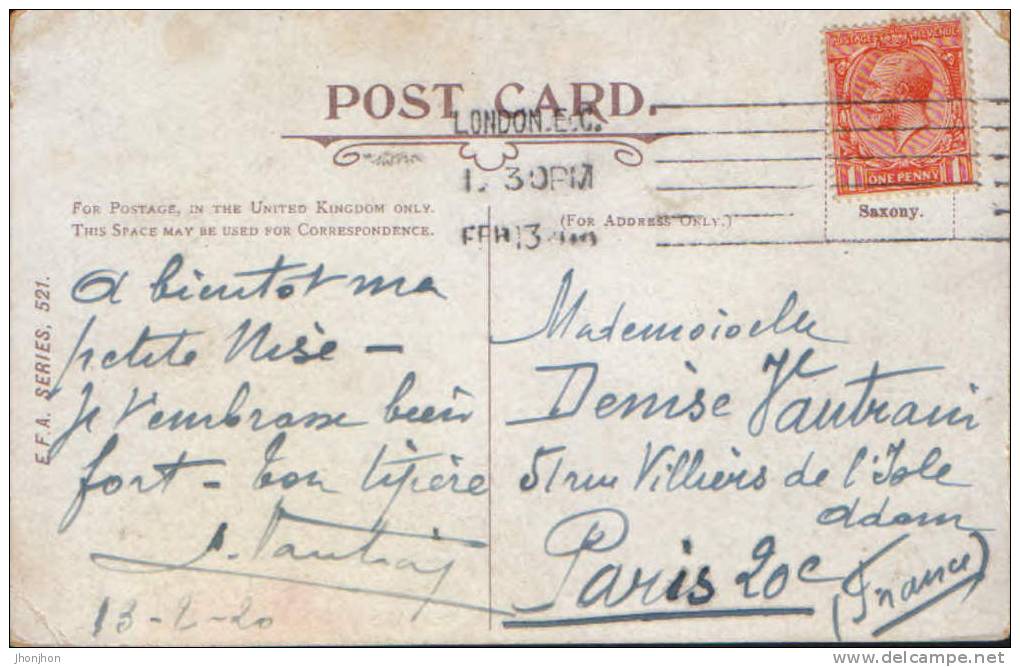 POST CARD.
LONDON.E.C.
1. 30PM
FEB 13
POSTAGE REVENUE
ONE PENNY
Saxony.
FOR POSTAGE, IN THE UNITED KINGDOM ONLY.
THIS SPACE MAY BE USED FOR CORRESPONDENCE.
(FOR ADDRESS ONLY.)
E.F.A. SERIES, 521.
A bientot ma
petite Nise –
Je t'embrasse bien
fort – ton
. Vautrain
13-2-20
Mademoiselle
Denise Vautrain
51 rue Villiers de l'Isle
adam
Paris 20e (France)
jhonjhon
www.delcampe.net